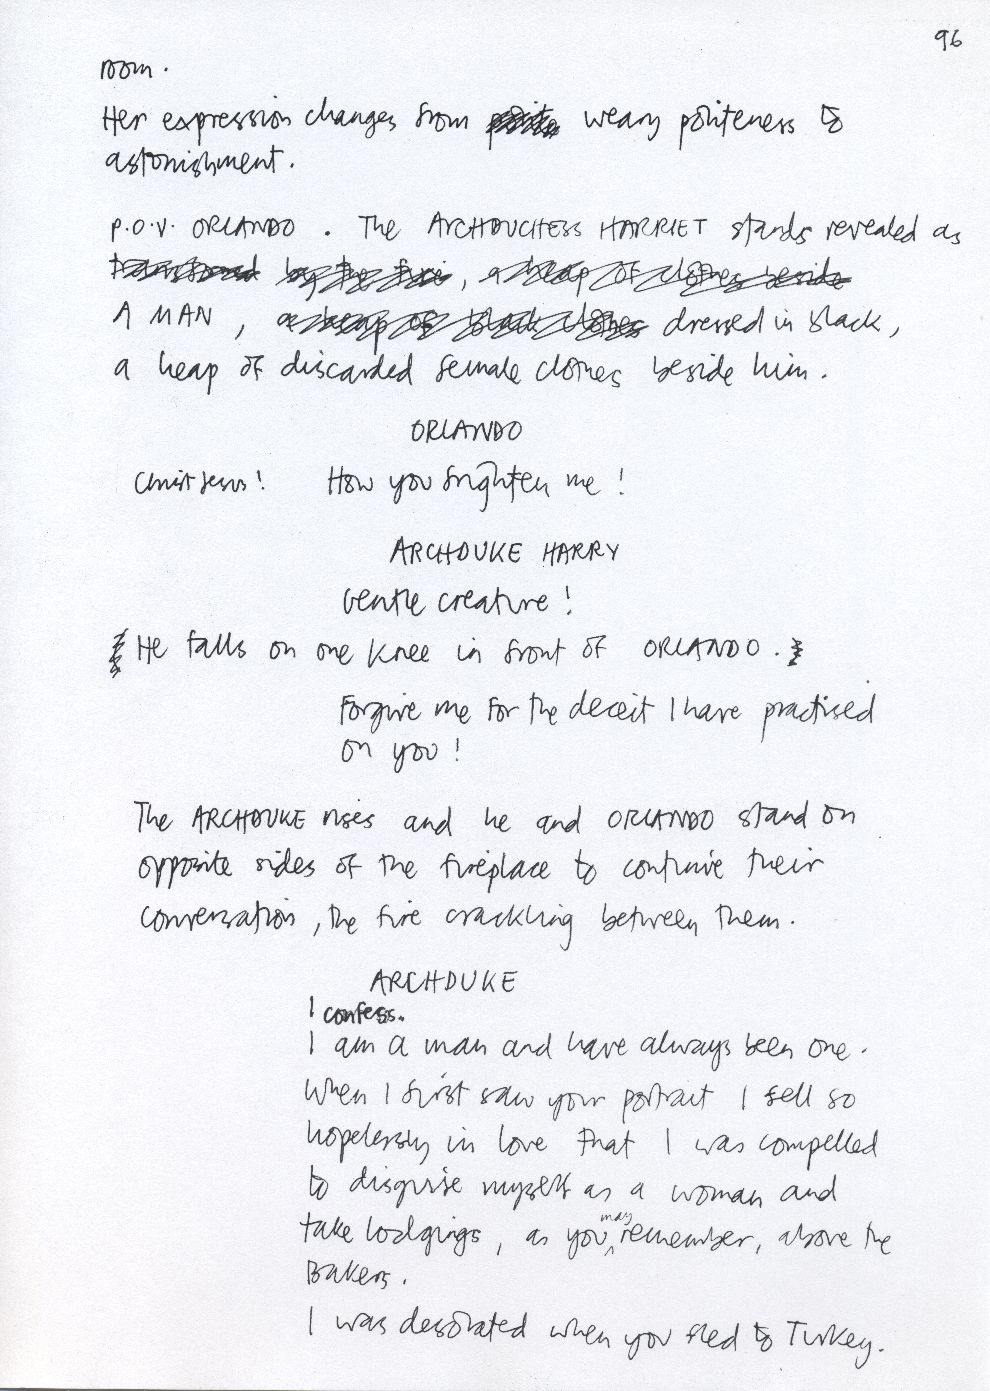 96
room.
Her expression changes from weary politeness to
astonishment.
P.O.V. ORLANDO. The ARCHDUCHESS HARRIET stands revealed as
transformed by the fire, a heap of clothes beside
A MAN, a heap of black clothes dressed in black,
a heap of discarded female clothes beside him.
ORLANDO
Christ Jesus! How you frighten me!
ARCHDUKE HARRY
Gentle creature!
He falls on one knee in front of ORLANDO.
Forgive me for the deceit I have practised
on you!
The ARCHDUKE rises and he and ORLANDO stand on
opposite sides of the fireplace to continue their
conversation, the fire crackling between them.
ARCHDUKE
I confess.
I am a man and have always been one.
When I first saw your portrait I fell so
hopelessly in love that I was compelled
to disguise myself as a woman and
take lodgings, as you may remember, above the
Bakers.
I was desolated when you fled to Turkey.